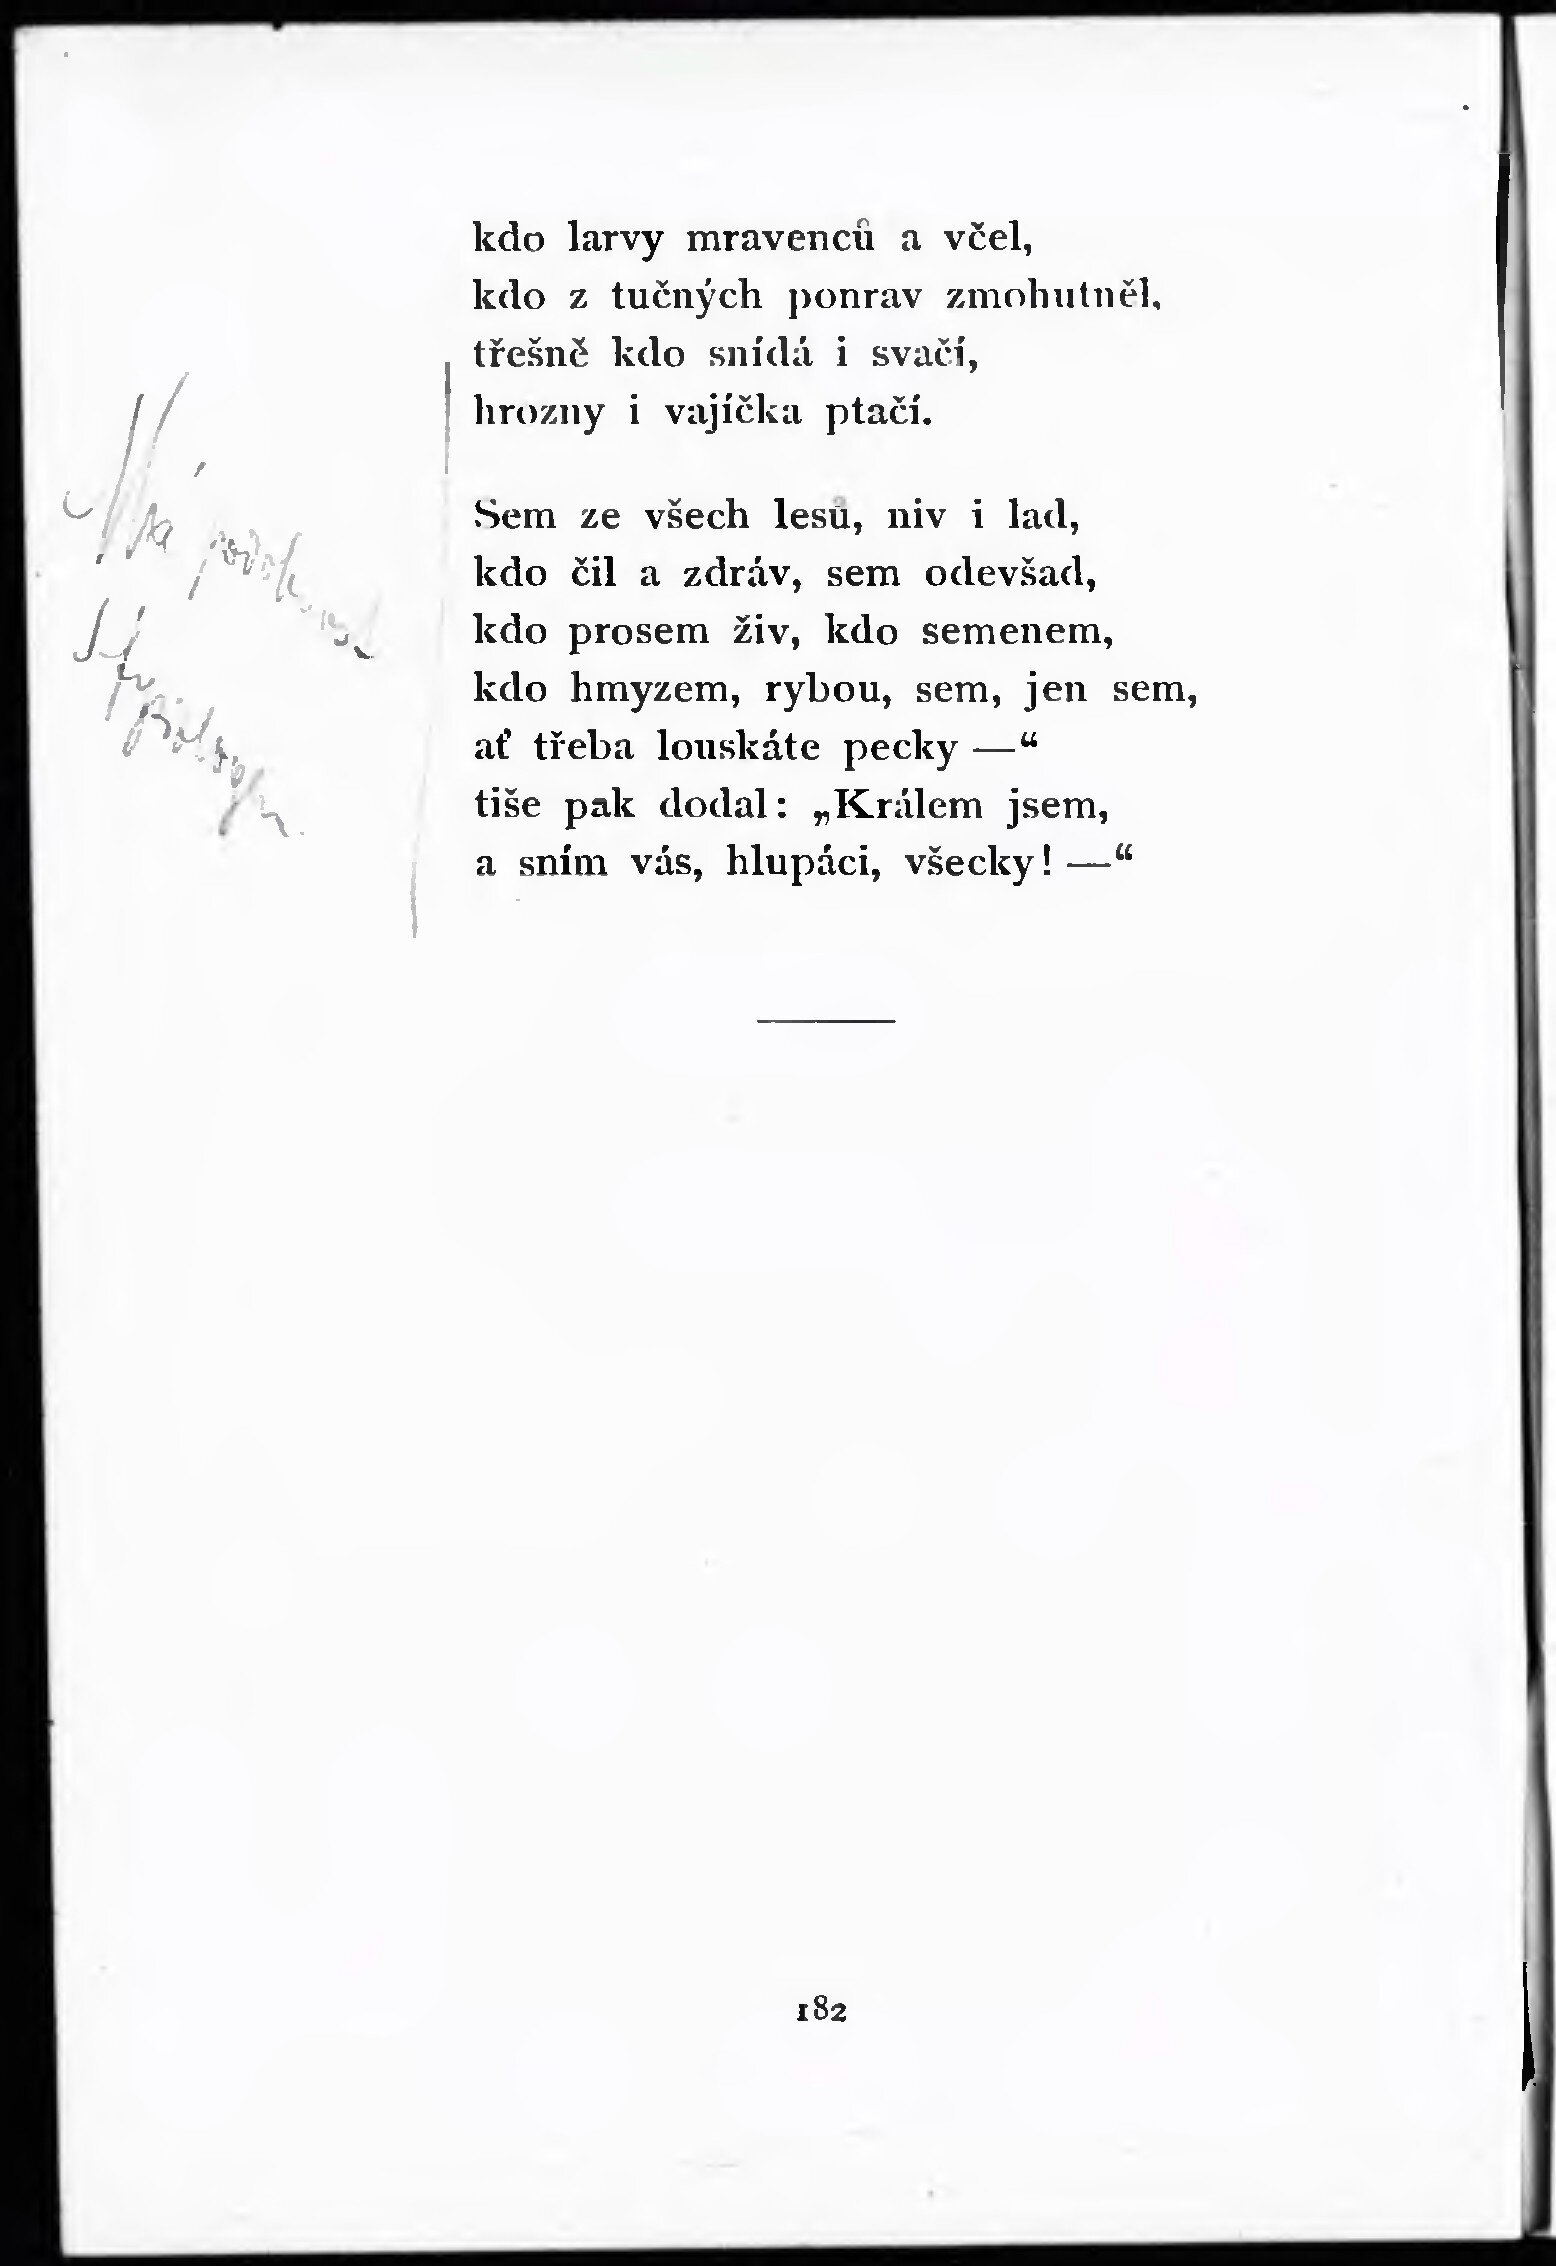 kdo larvy mravenců a včel,
kdo z tučných ponrav zmohutněl,
třešně kdo snídá i svačí,
hrozny i vajíčka ptačí.
Sem ze všech lesů, niv i lad,
kdo čil a zdráv, sem odevšad,
kdo prosem živ, kdo semenem,
kdo hmyzem, rybou, sem, jen sem,
ať třeba louskáte pecky —“
tiše pak dodal: „Králem jsem,
a sním vás, hlupáci, všecky! —“
182